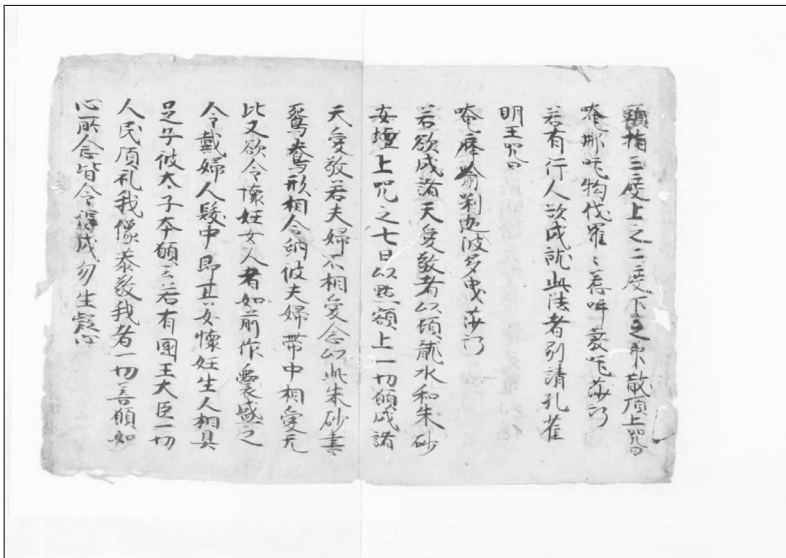 頭指三度上之二度下之弟散頂上咒曰
唵那吒物伐羅〻惹吽癹吒莎訶
若有行人欲成就此法者別請孔雀
明王咒曰
唵麼翁剎迦波多曳莎訶
若欲成諸天愛敬者以頭龍水和朱砂
安壇上咒之七日以點額上一切願成諸
天愛敬若夫婦不相愛念以此朱砂書
鴛鴦形相合納彼夫婦帶中相愛无
比又欲令懷妊女人者如前作囊盛之
令戴婦人髮中即其女懷妊生人相具
足子彼太子本願云若有國王大臣一切
人民頂礼我像恭敬我者一切善願如
心所念皆令得成勿生疑心